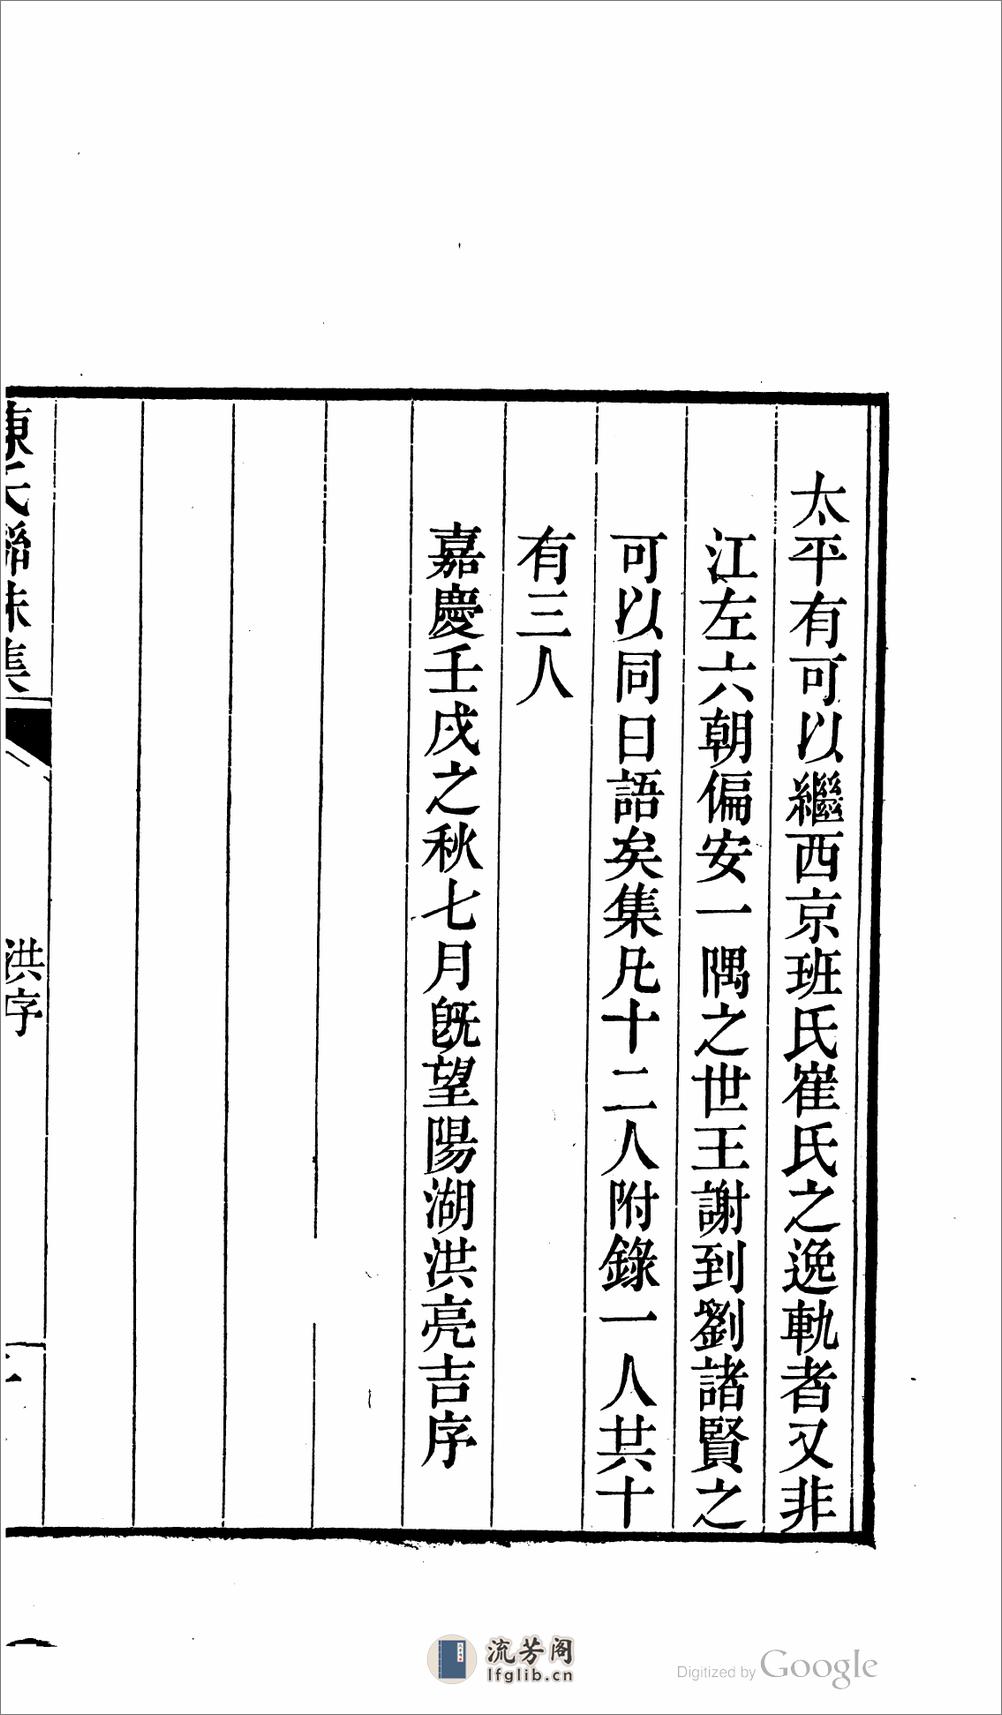 太平有可以繼西京班氏崔氏之逸軌者又非
江左六朝偏安一隅之世王謝到劉諸賢之
可以同日語矣集凡十二人附錄一人共十
有三人
嘉慶壬戌之秋七月既望陽湖洪亮吉序
陳氏聯珠集
洪序
流芳阁
lfglib.cn
Digitized by Google